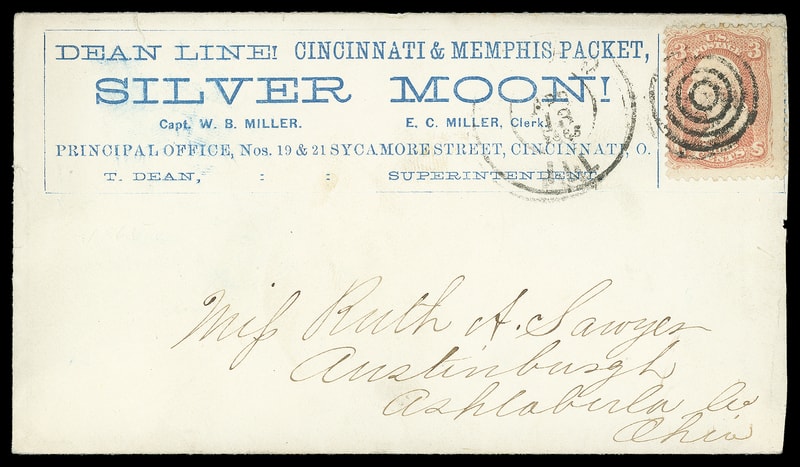 DEAN LINE! CINCINNATI & MEMPHIS PACKET,
SILVER MOON!
Capt. W. B. MILLER. E. C. MILLER, Clerk.
PRINCIPAL OFFICE, Nos. 19 & 21 SYCAMORE STREET, CINCINNATI, O.
T. DEAN, : : SUPERINTENDENT.
3 U.S. 3
POSTAGE
CENTS
ILL
Miſs Ruth A. Sawyer
Austinburgh
Ashtabula Co
Ohio